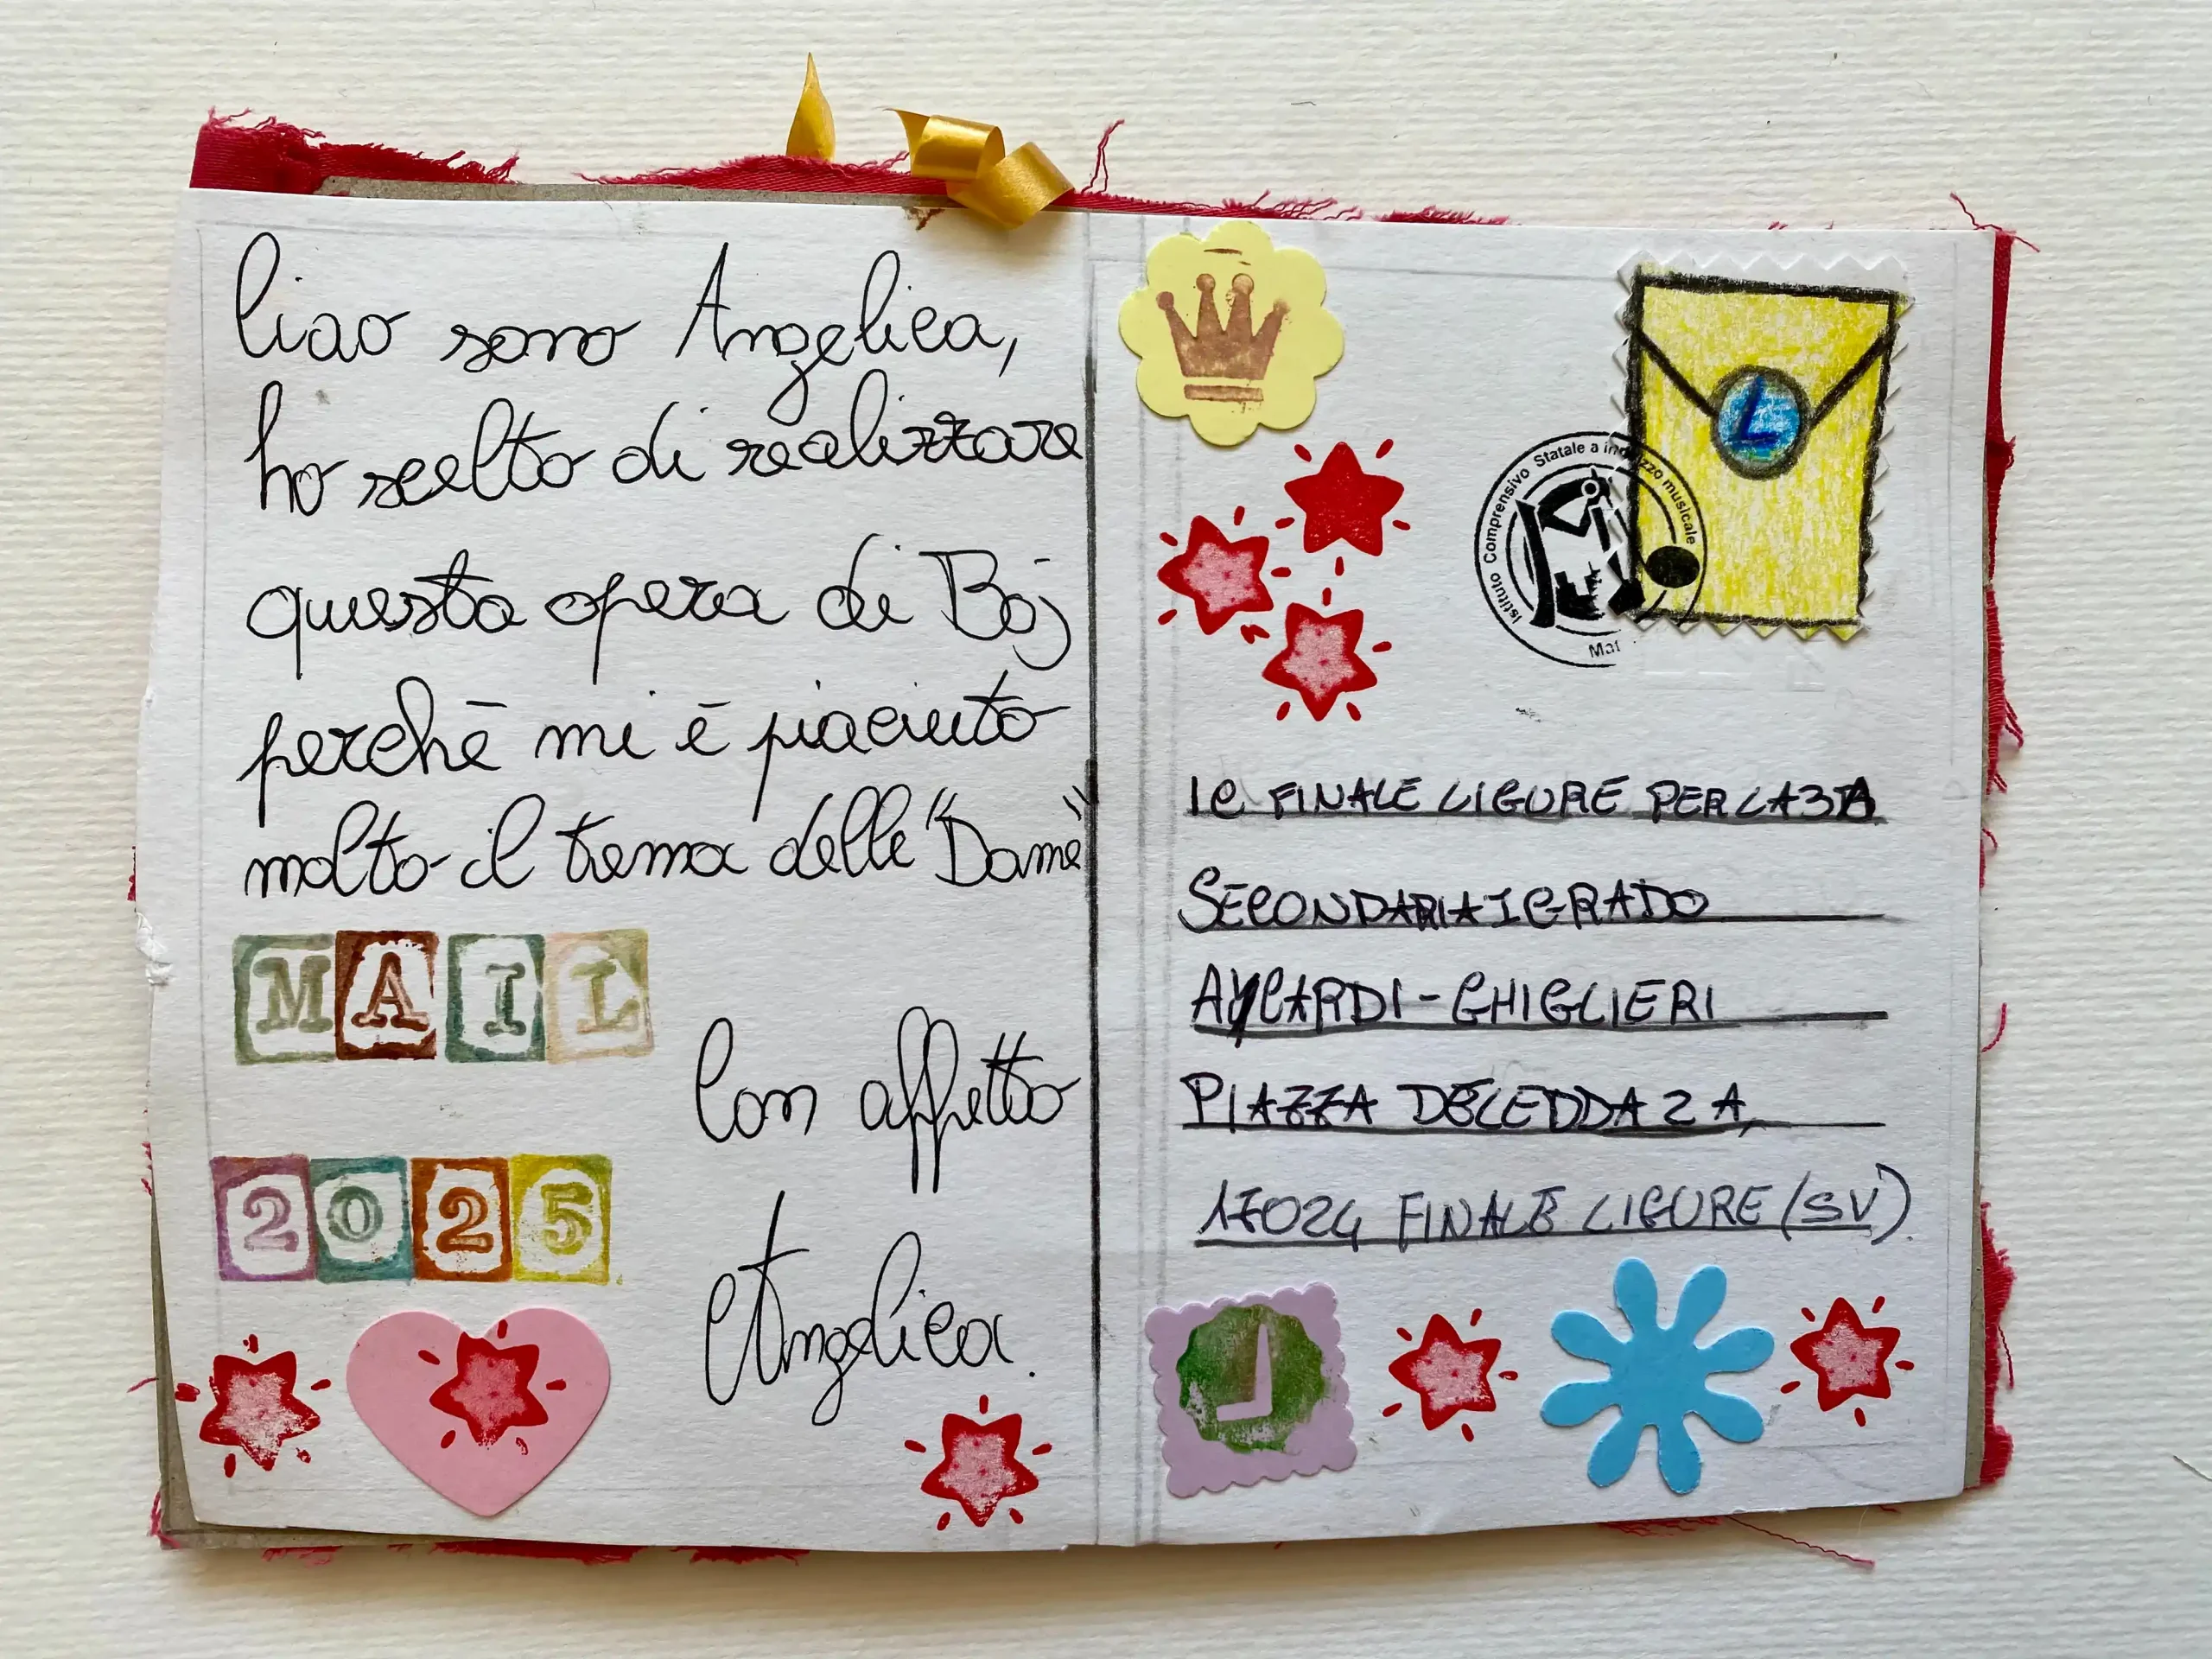 Ciao sono Angelica,
ho scelto di realizzare
questa opera di Boj
perchē mi ē piaciuto
molto il tema delle "Dame"
MAIL
Con affetto
2025
Angelica.
L
Istituto Comprensivo Statale a indirizzo musicale
IC FINALE LIGURE PER LA 3A
SECONDARIA I GRADO
AYCARDI-GHIGLIERI
PIAZZA DELEDDA 2 A,
17024 FINALE LIGURE (SV).